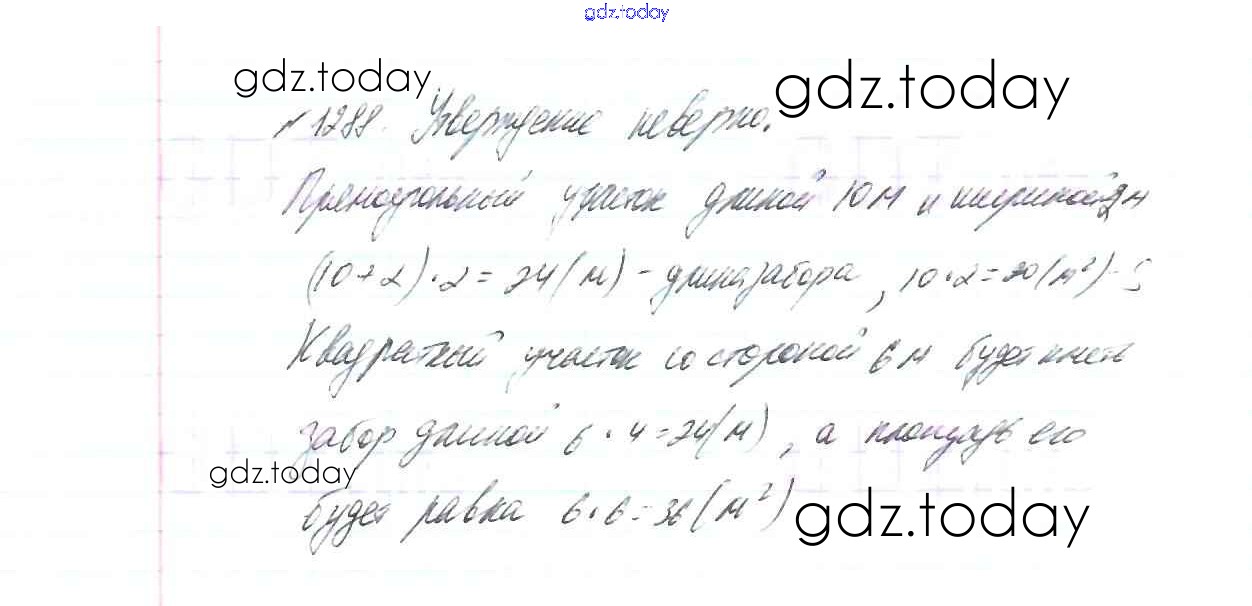 gdz.today
gdz.today gdz.today
№ 1288. Утверждение неверно.
Прямоугольный участок длиной 10 м и шириной 2 м
(10+2)·2=24(м) - длина забора, 10·2=20(м²)-S
Квадратный участок со стороной 6 м будет иметь
забор длиной 6·4=24(м), а площадь его
gdz.today
будет равна 6·6=36(м²)
gdz.today